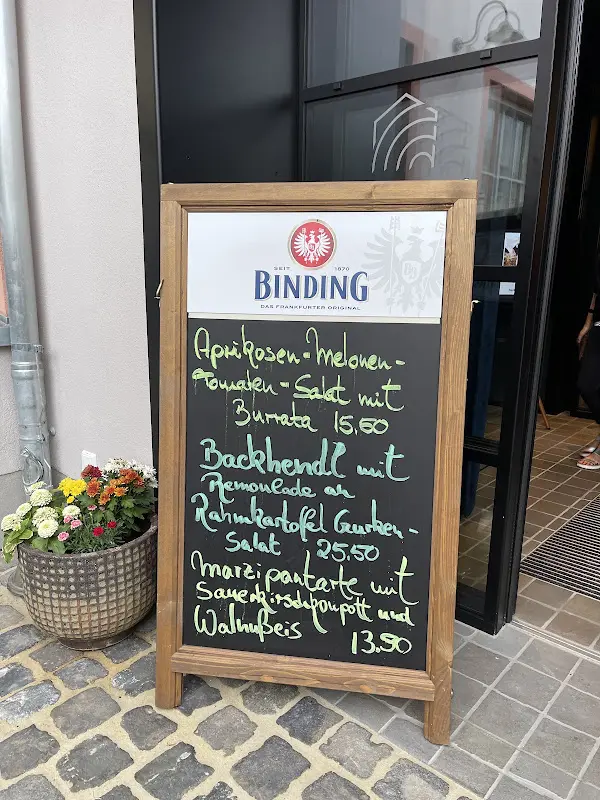 SEIT 1870
BINDING
DAS FRANKFURTER ORIGINAL
Aprikosen-Melonen-
Tomaten-Salat mit
Burrata 15.60
Backhendl mit
Remoulade an
Rahmkartoffel Gurken-
Salat 25.50
Marzipantarte mit
Sauerkirschkompott und
Walnußeis 13.90